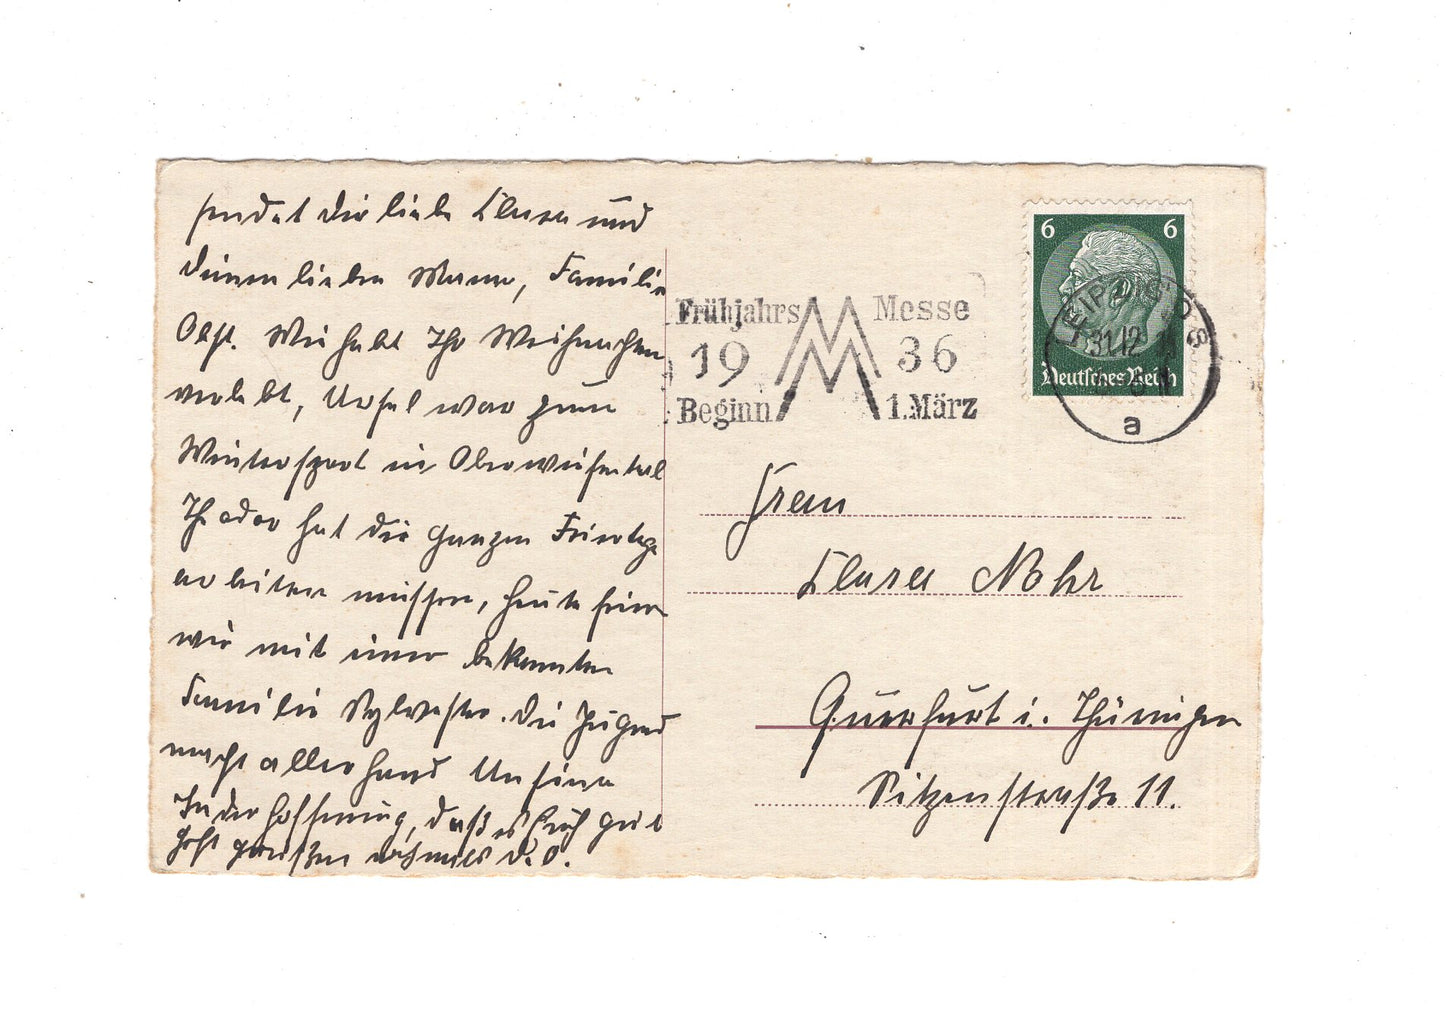 sendet dir liebe Klara und
deinem lieben Mann, Familie
Obst. Wie habt Ihr Weihnachten
verlebt, Ursel war zum
Wintersport in Oberwiesental
Theodor hat die ganzen Feiertage
arbeiten müssen, heute feiern
wir mit einer bekannten
Familie Sylvester. Die Jugend
macht allerhand Unsinn
In der Hoffnung, daß es Euch gut
geht grüßen nochmals d. O.
Frühjahrs Messe
19 36
Beginn 1. März
6 6
Deutsches Reich
LEIPZIG O5
31.12
a
Frau
Klara Nohr
Querfurt i. Thüringen
Nitzenstraße 11.